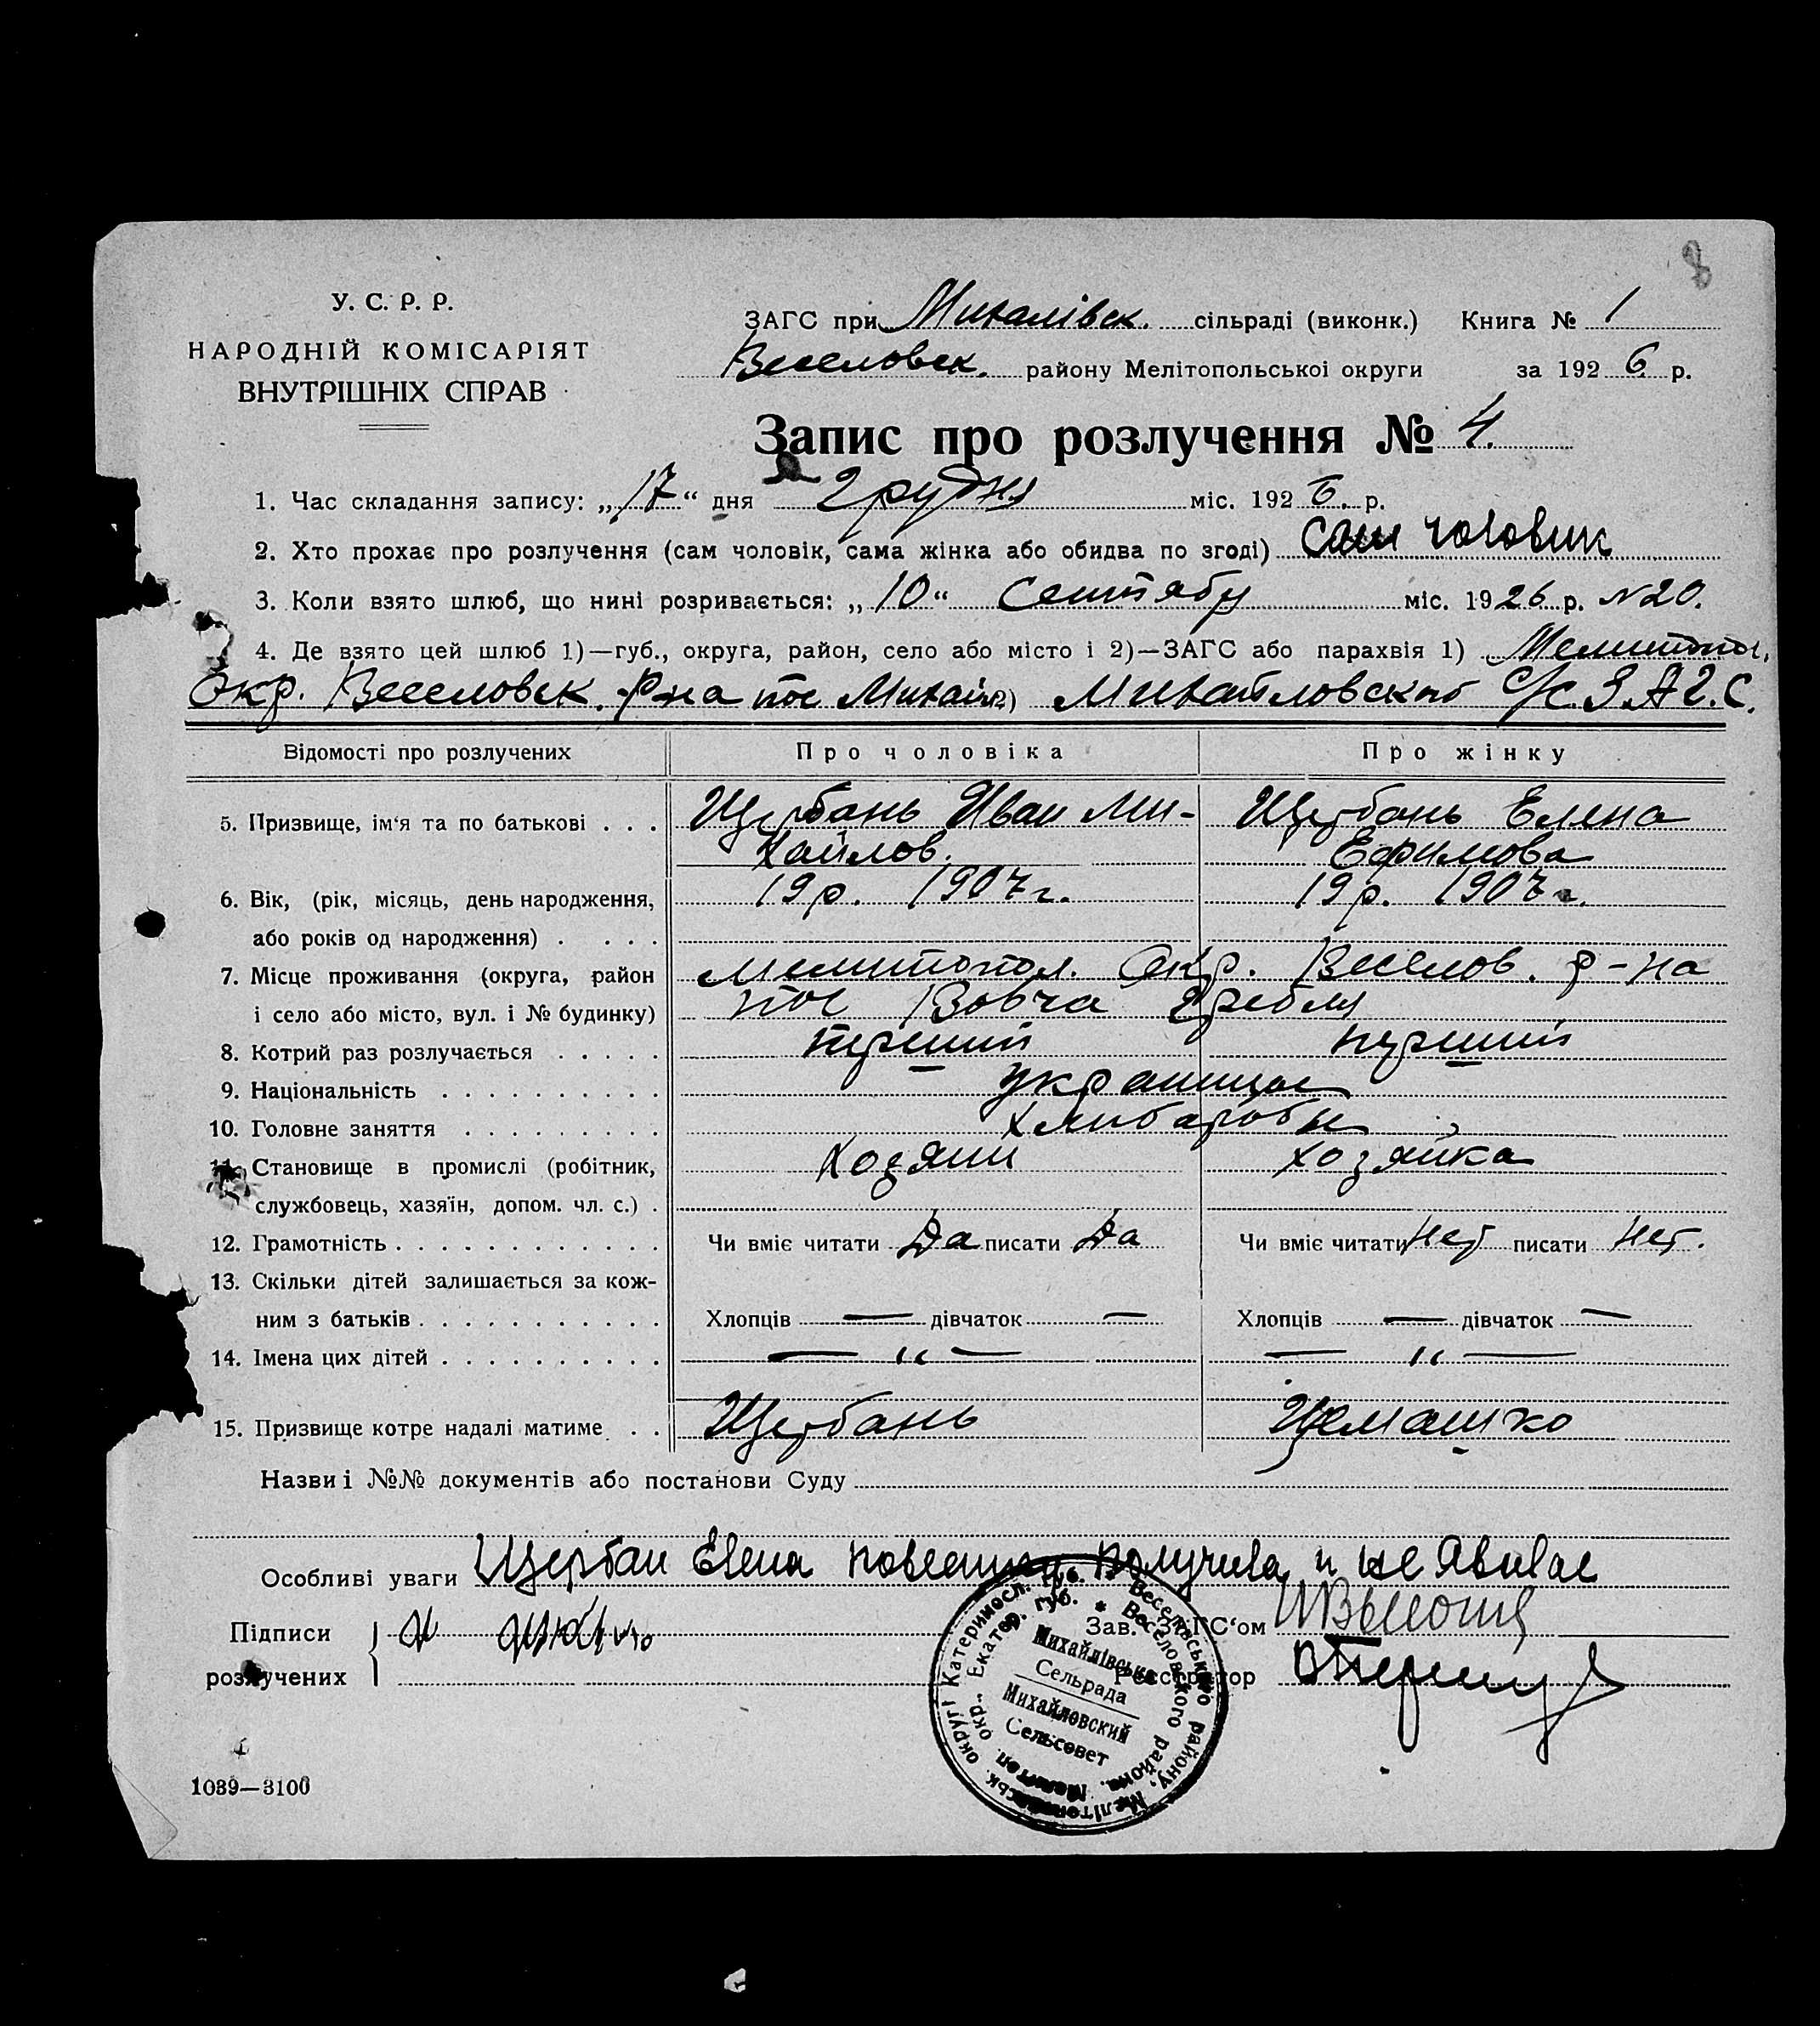 8
У. С. Р. Р.
НАРОДНІЙ КОМІСАРІЯТ
ВНУТРІШНІХ СПРАВ
ЗАГС при Михалівск. сільраді (виконк.) Книга № 1
Веселовск. району Мелітопольської округи за 1926 р.
Запис про розлучення № 4.
1. Час складання запису: „17“ дня грудня міс. 1926 р.
2. Хто прохає про розлучення (сам чоловік, сама жінка або обидва по згоді) Сам чоловик
3. Коли взято шлюб, що нині розривається: „10“ Сентябу міс. 1926 р. №20.
4. Де взято цей шлюб 1)—губ., округа, район, село або місто і 2)—ЗАГС або парахвія 1) Мелитопол.
Окр. Веселовск. р-на пос Михай 2) Михайловский с/с. ЗАГС.
Відомості про розлучених Про чоловіка Про жінку
5. Призвище, ім‘я та по батькові . . . Щербань Иван Ми- Щербань Елена
хайлов. Ефимова
6. Вік, (рік, місяць, день народження, 19 р. 1907 г. 19 р. 1907 г.
або років од народження) . . . .
7. Місце проживання (округа, район Мелитопол. Окр. Веселов. р-на
і село або місто, вул. і № будинку) пос Вовча Гребля
8. Котрий раз розлучається . . . . . перший перший
9. Національність . . . . . . . . . . украинцы
10. Головне заняття . . . . . . . . . хлибаробы
11. Становище в промислі (робітник, Хозяин хозяйка
службовець, хазяїн, допом. чл. с.) .
12. Грамотність . . . . . . . . . . . . Чи вміє читати Да писати Да Чи вміє читати Нет писати Нет.
13. Скільки дітей залишається за кож-
ним з батьків . . . . . . . . . . . Хлопців — дівчаток — Хлопців — дівчаток —
14. Імена цих дітей . . . . . . . . . . — „ — — „ —
15. Призвище котре надалі матиме . . Щербань Шемашко
Назви і №№ документів або постанови Суду
Особливі уваги Щербан Елена повестку получила и не явилас
Підписи Зав. ЗАГС‘ом
розлучених Реєстратор
Катериносл. губ. Веселівського району, Мелітопільськ. округі
Екатер. губ. * Веселовского района, Мелитоп. окр.
Михайлівська
Сельрада
Михайловский
Сельсовет
1039—3100